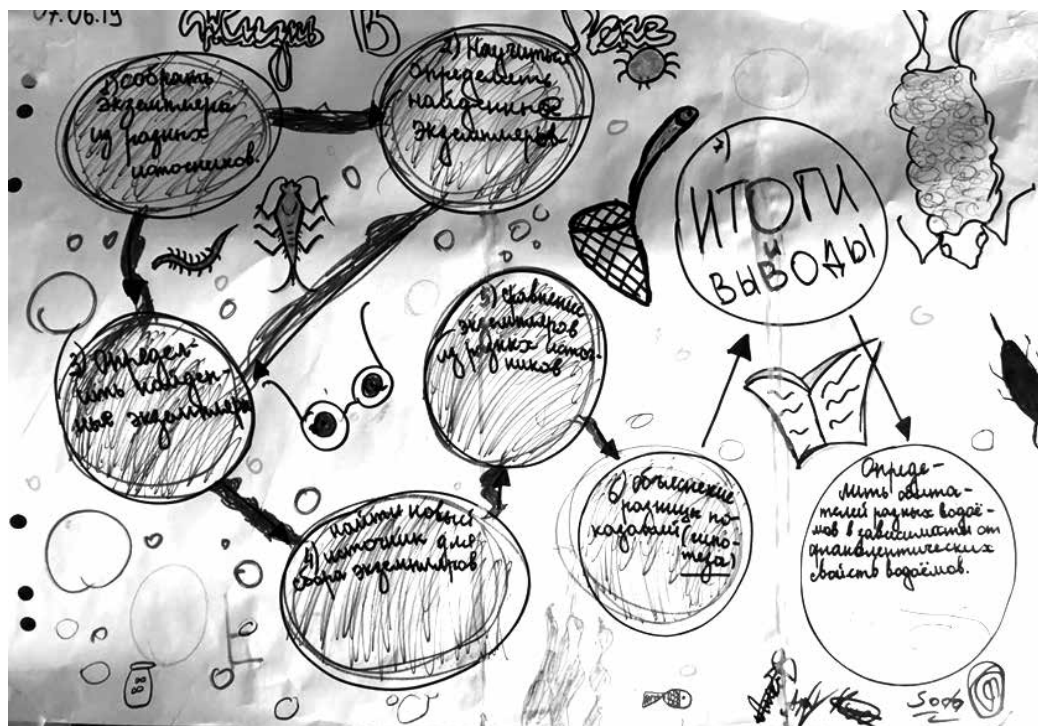 07.06.19
Жизнь В Реке
1) собрать
экземпляры
из разных
источников.
2) Научиться
определять
найденные
экземпляров
3) Опреде-
лить найден-
ные экземпляры
найти новый
4) источник для
сбора экземпляров
5) сравнение
экземпляров
из разных источ-
ников
6) объяснение
разницы по-
казаний (гипо-
теза)
7)
ИТОГИ
И
ВЫВОДЫ
Опреде-
лить обита-
телей разных водоё-
мов в зависимости от
свойств водоёмов.